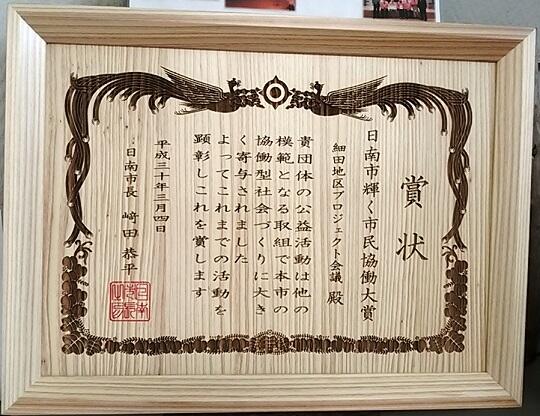 賞状
日南市輝く市民協働大賞
細田地区プロジェクト会議 殿
貴団体の公益活動は他の
模範となる取組で本市の
協働型社会づくりに大き
く寄与されました
よってこれまでの活動を
顕彰しこれを賞します
平成三十年三月四日
日南市長 﨑田恭平